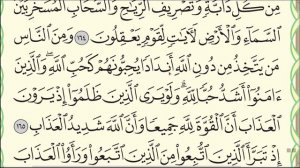 مِن كُلِّ دَآبَّةٍ وَتَصْرِيفِ ٱلرِّيَٰحِ وَٱلسَّحَابِ ٱلْمُسَخَّرِ بَيْنَ
ٱلسَّمَآءِ وَٱلْأَرْضِ لَءَايَٰتٍ لِّقَوْمٍ يَعْقِلُونَ ١٦٤ وَمِنَ ٱلنَّاسِ
مَن يَتَّخِذُ مِن دُونِ ٱللَّهِ أَندَادًا يُحِبُّونَهُمْ كَحُبِّ ٱللَّهِ وَٱلَّذِينَ
ءَامَنُوٓا۟ أَشَدُّ حُبًّا لِّلَّهِ وَلَوْ يَرَى ٱلَّذِينَ ظَلَمُوٓا۟ إِذْ يَرَوْنَ
ٱلْعَذَابَ أَنَّ ٱلْقُوَّةَ لِلَّهِ جَمِيعًا وَأَنَّ ٱللَّهَ شَدِيدُ ٱلْعَذَابِ ١٦٥
إِذْ تَبَرَّأَ ٱلَّذِينَ ٱتُّبِعُوا۟ مِنَ ٱلَّذِينَ ٱتَّبَعُوا۟ وَرَأَوُا۟ ٱلْعَذَابَ